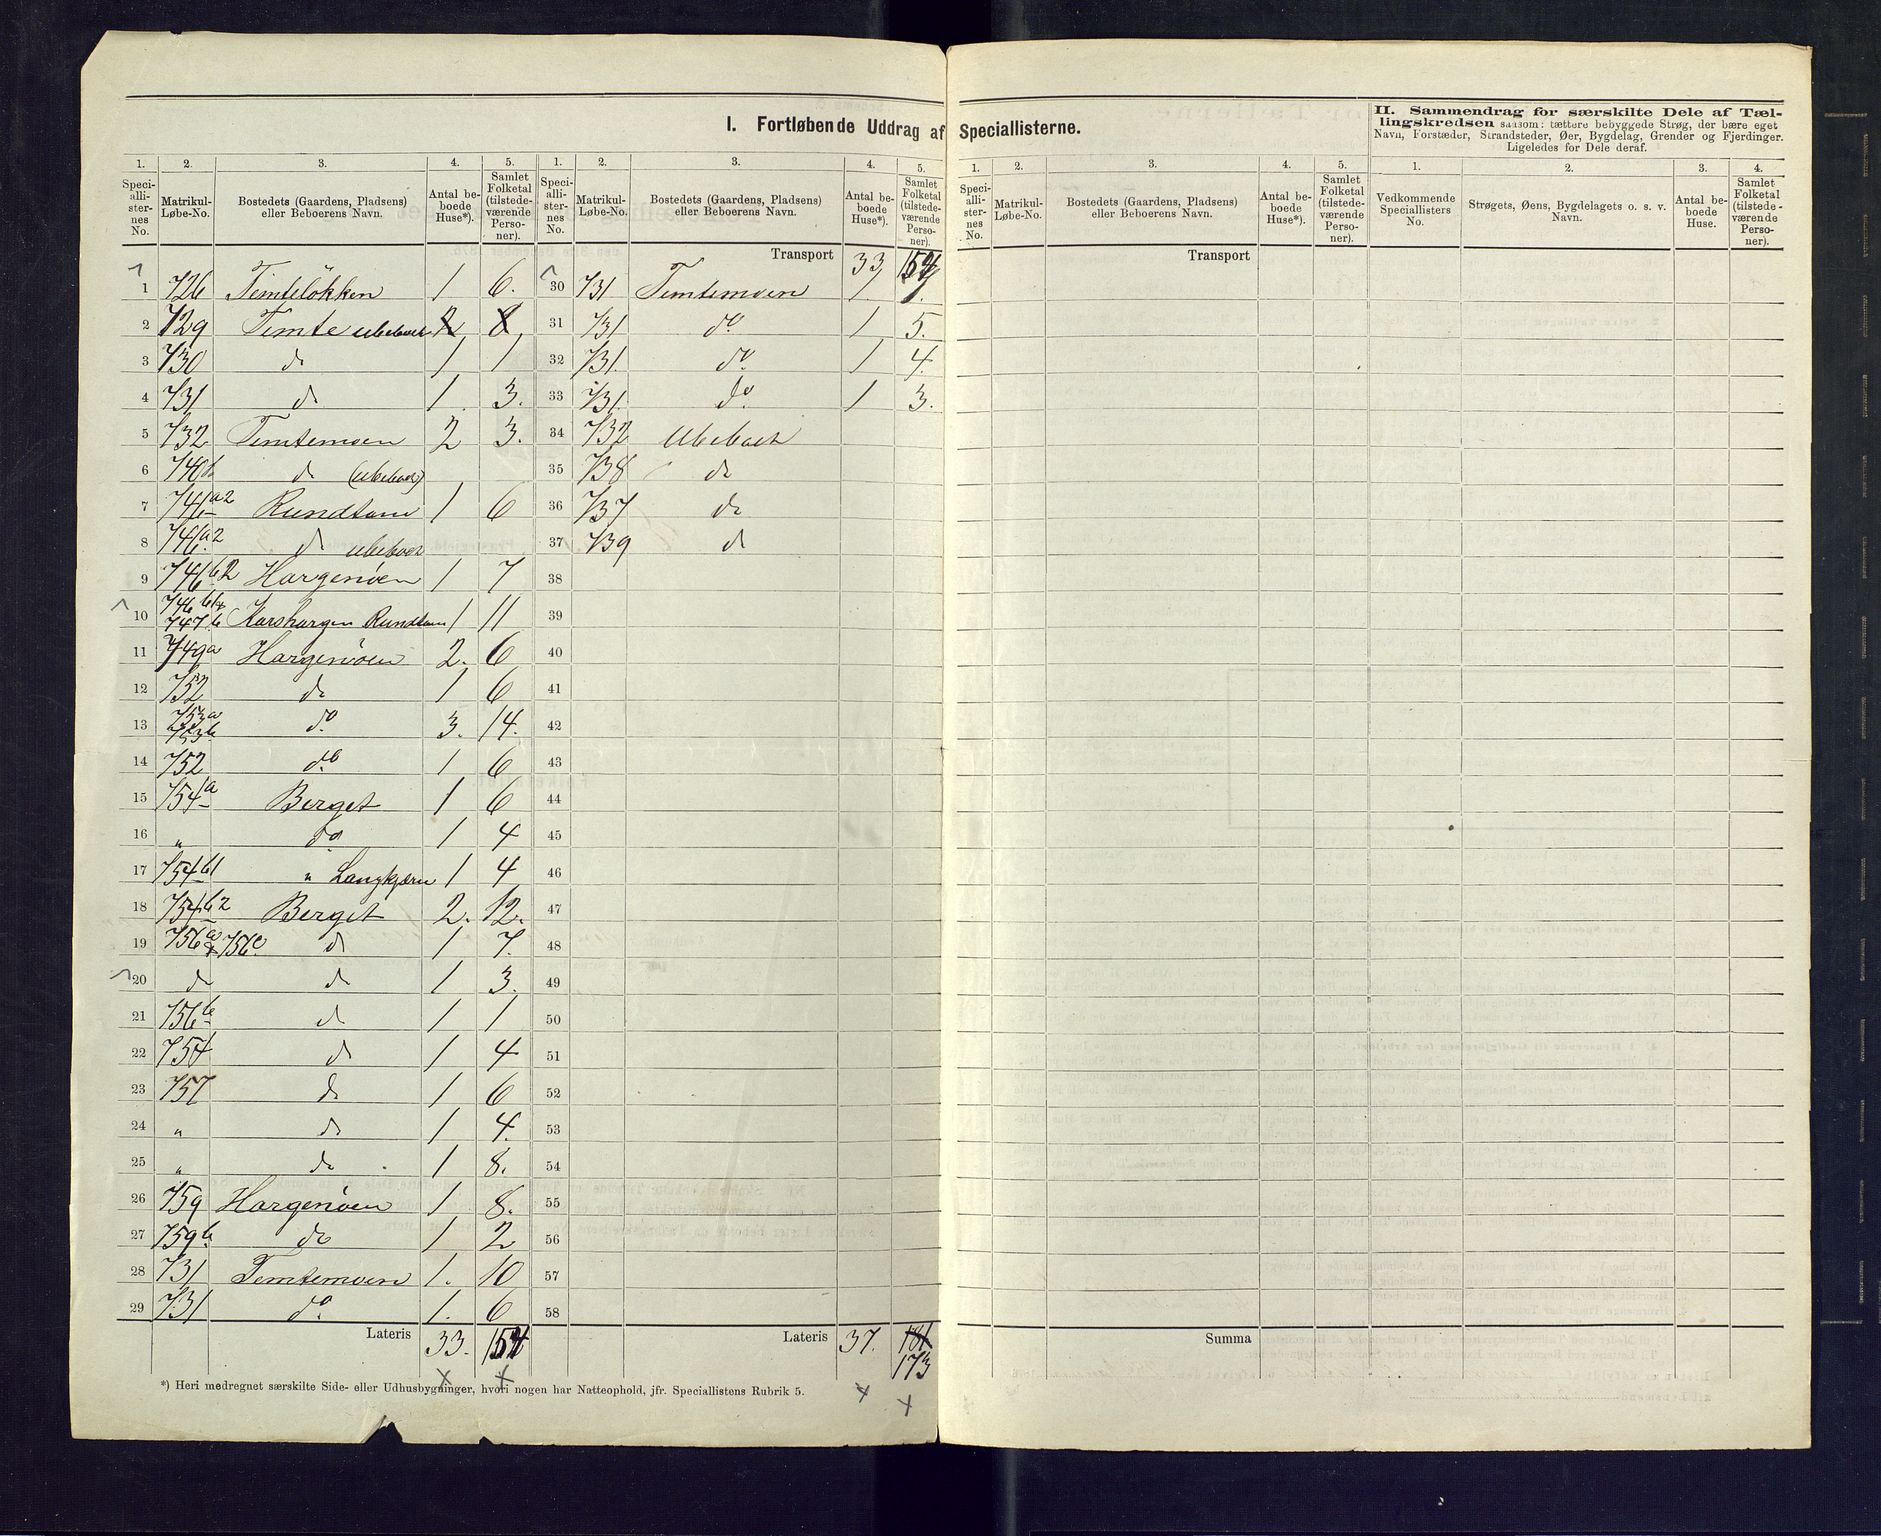 I. Fortløbende Uddrag af Speciallisterne.
II. Sammendrag for særskilte Dele af Tællingskredsen saasom: tættere bebyggede Strøg, der bære eget
Navn, Forstæder, Strandsteder, Øer, Bygdelag, Grender og Fjerdinger.
Ligeledes for Dele deraf.
1. 2. 3. 4. 5. 1. 2. 3. 4. 5. 1. 2. 3. 4. 5. 1. 2. 3. 4.
Speciallisternes No. Matrikul-Løbe-No. Bostedets (Gaardens, Pladsens) eller Beboerens Navn. Antal beboede Huse*). Samlet Folketal (tilstedeværende Personer).
Speciallisternes No. Matrikul-Løbe-No. Bostedets (Gaardens, Pladsens) eller Beboerens Navn. Antal beboede Huse*). Samlet Folketal (tilstedeværende Personer).
Speciallisternes No. Matrikul-Løbe-No. Bostedets (Gaardens, Pladsens) eller Beboerens Navn. Antal beboede Huse*). Samlet Folketal (tilstedeværende Personer).
Vedkommende Speciallisters No. Strøgets, Øens, Bygdelagets o. s. v. Navn. Antal beboede Huse. Samlet Folketal (tilstedeværende Personer).
1 726 Temteløkken 1 6.
2 729 Temte ubeboet 2 8
3 730 do 1 1
4 731 do 1. 3.
5 732 Temtemoen 2 3.
6 740b do (ubeboet)
7 746a2 Rundtom 1 6
8 746a2 do ubeboet
9 746b2 Hargenøen 1 7
10 746b1 747b Karshargen Rundtom 1 11
11 749a Hargenøen 2. 6
12 752 do 1 6
13 753a 753b do. 3. 14.
14 752 do. 1 6
15 754a Berget 1 6
16 " do 1 4
17 754b1 " Langkjern 1 4
18 754b2 Berget 2. 12.
19 756a + 756c. do 1 7.
20 do do 1 3.
21 756b do 1 1
22 754 do 1 4
23 757 do 1 6
24 " do 1 4.
25 " do 1 8.
26 759 Hargenøen 1. 8.
27 759b do 1 2
28 731 Temtemoen 1. 10
29 731 do. 1. 6
Lateris 33.
Transport 33
30 731 Temtemoen 1
31 731 do 1 5.
32 731. do. 1 4.
33 731. do. 1 3.
34 732 Ubeboet
35 738 do
36 737 do
37 739 do
38
39
40
41
42
43
44
45
46
47
48
49
50
51
52
53
54
55
56
57
58
Lateris 37. 181
173
Transport
Summa
*) Heri medregnet særskilte Side- eller Udhusbygninger, hvori nogen har Natteophold, jfr. Speciallistens Rubrik 5.